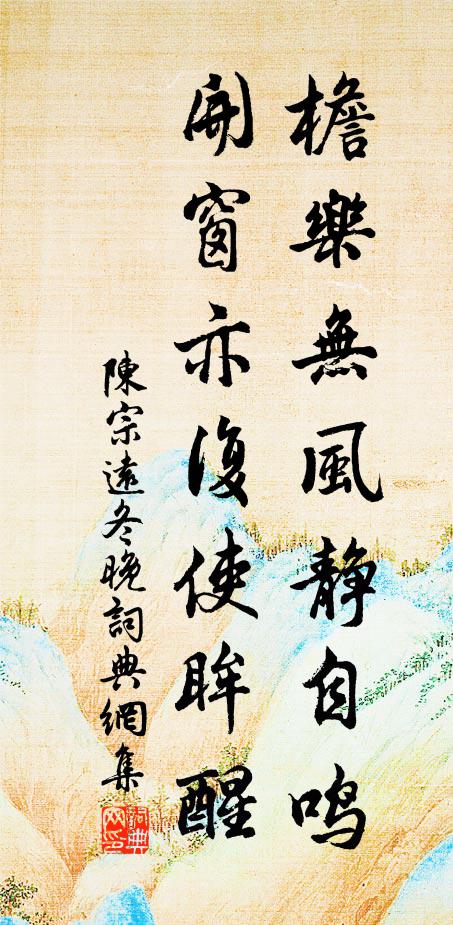 檐樂無風静自鸣
開窗亦復使眸醒
陳宗遠冬晚詞典網集
詞典网印